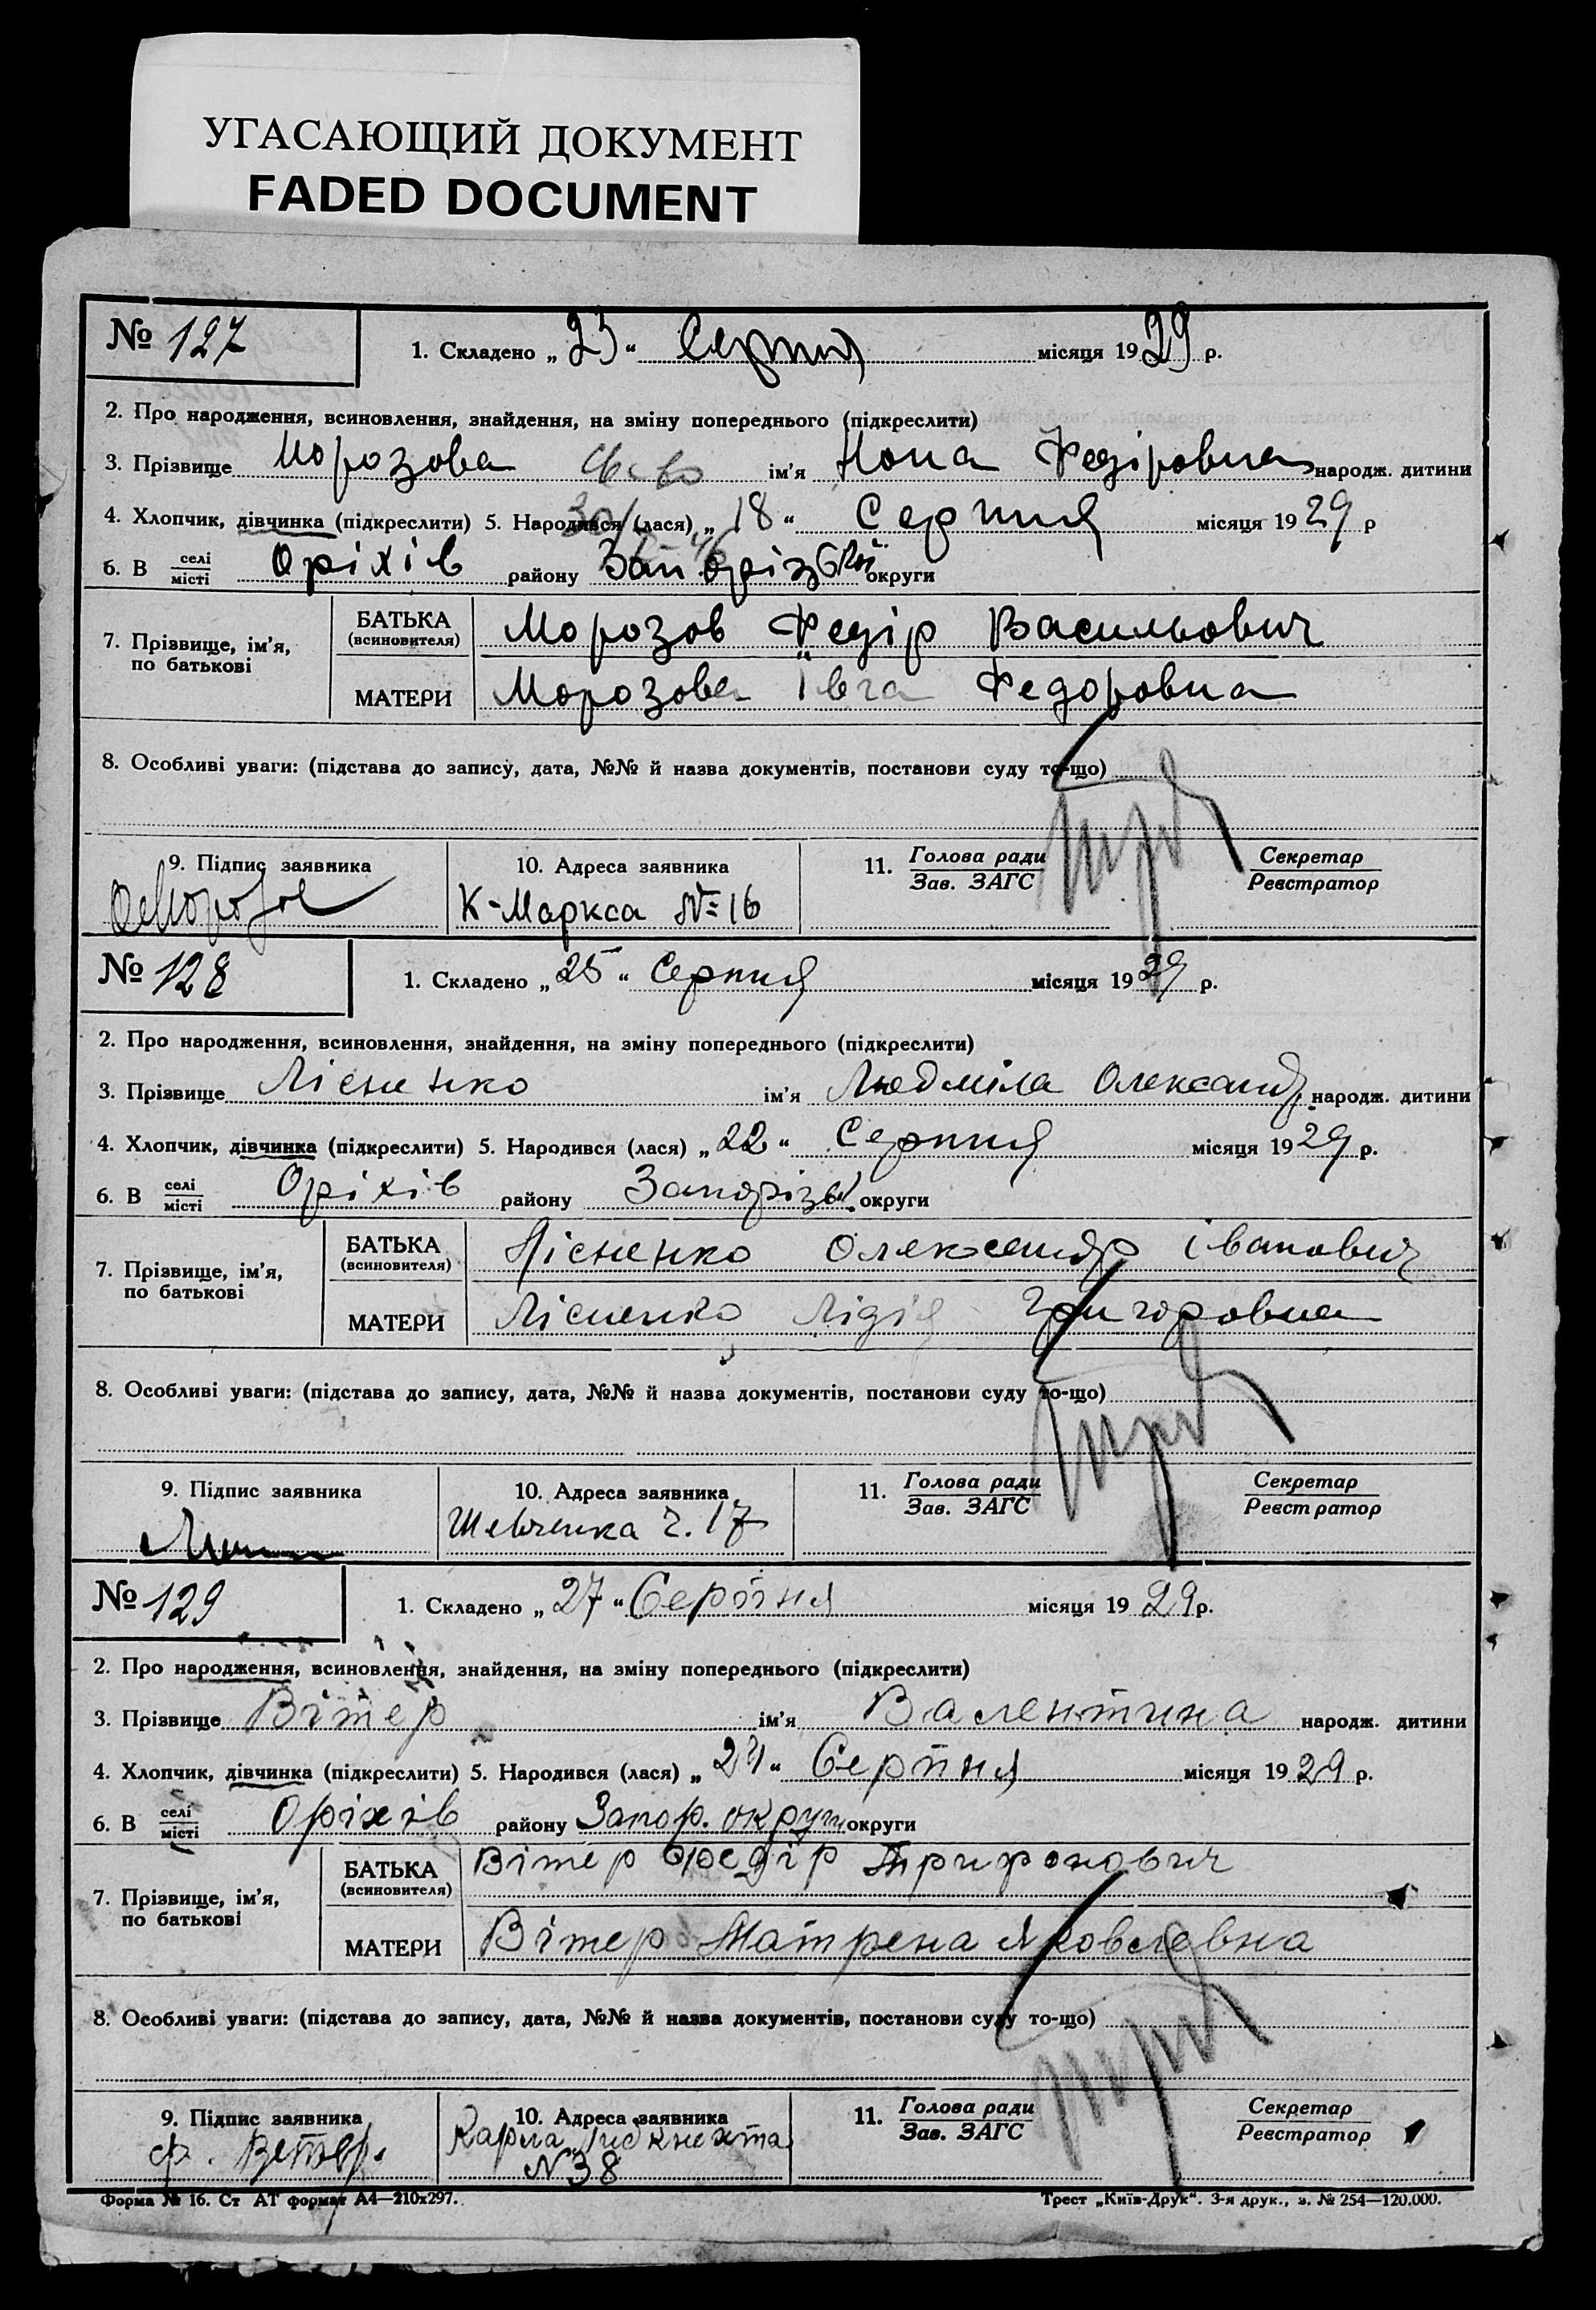 УГАСАЮЩИЙ ДОКУМЕНТ
FADED DOCUMENT
№ 127
1. Складено „ 23 “ Серпня місяця 1929 р.
2. Про народження, всиновлення, знайдення, на зміну попереднього (підкреслити)
3. Прізвище Морозова ім'я Нона Федіровна народж. дитини
4. Хлопчик, дівчинка (підкреслити) 5. Народився (лася) „ 18 “ Серпня місяця 1929 р
6. В селі місті Оріхів району Запорізької округи
7. Прізвище, ім'я, по батькові
БАТЬКА (всиновителя) Морозов Федір Васильович
МАТЕРИ Морозова Ївга Федоровна
8. Особливі уваги: (підстава до запису, дата, №№ й назва документів, постанови суду то-що)
9. Підпис заявника
10. Адреса заявника
11. Голова ради Зав. ЗАГС
Секретар Реєстратор
К-Маркса №16
№ 128
1. Складено „ 25 “ Серпня місяця 1929 р.
2. Про народження, всиновлення, знайдення, на зміну попереднього (підкреслити)
3. Прізвище Лісненко ім'я Людміла Олександ. народж. дитини
4. Хлопчик, дівчинка (підкреслити) 5. Народився (лася) „ 22 “ Серпня місяця 1929 р.
6. В селі місті Оріхів району Запорізьк. округи
7. Прізвище, ім'я, по батькові
БАТЬКА (всиновителя) Лісненко Олександр Іванович
МАТЕРИ Лісненко Лідія Григоровна
8. Особливі уваги: (підстава до запису, дата, №№ й назва документів, постанови суду то-що)
9. Підпис заявника
10. Адреса заявника
11. Голова ради Зав. ЗАГС
Секретар Реєстратор
Шевченка ч. 17
№ 129
1. Складено „ 27 “ Серпня місяця 1929 р.
2. Про народження, всиновлення, знайдення, на зміну попереднього (підкреслити)
3. Прізвище Вітер ім'я Валентина народж. дитини
4. Хлопчик, дівчинка (підкреслити) 5. Народився (лася) „ 24 “ Серпня місяця 1929 р.
6. В селі місті Оріхів району Запор. округи округи
7. Прізвище, ім'я, по батькові
БАТЬКА (всиновителя) Вітер Федір Трифонович
МАТЕРИ Вітер Матрена Яковлевна
8. Особливі уваги: (підстава до запису, дата, №№ й назва документів, постанови суду то-що)
9. Підпис заявника
10. Адреса заявника
11. Голова ради Зав. ЗАГС
Секретар Реєстратор
ф. Ветер.
Карла Либкнехта
N 38
Форма № 16. Ст АТ формат А4—210x297.
Трест „Київ-Друк“. 3-я друк., з. № 254—120.000.